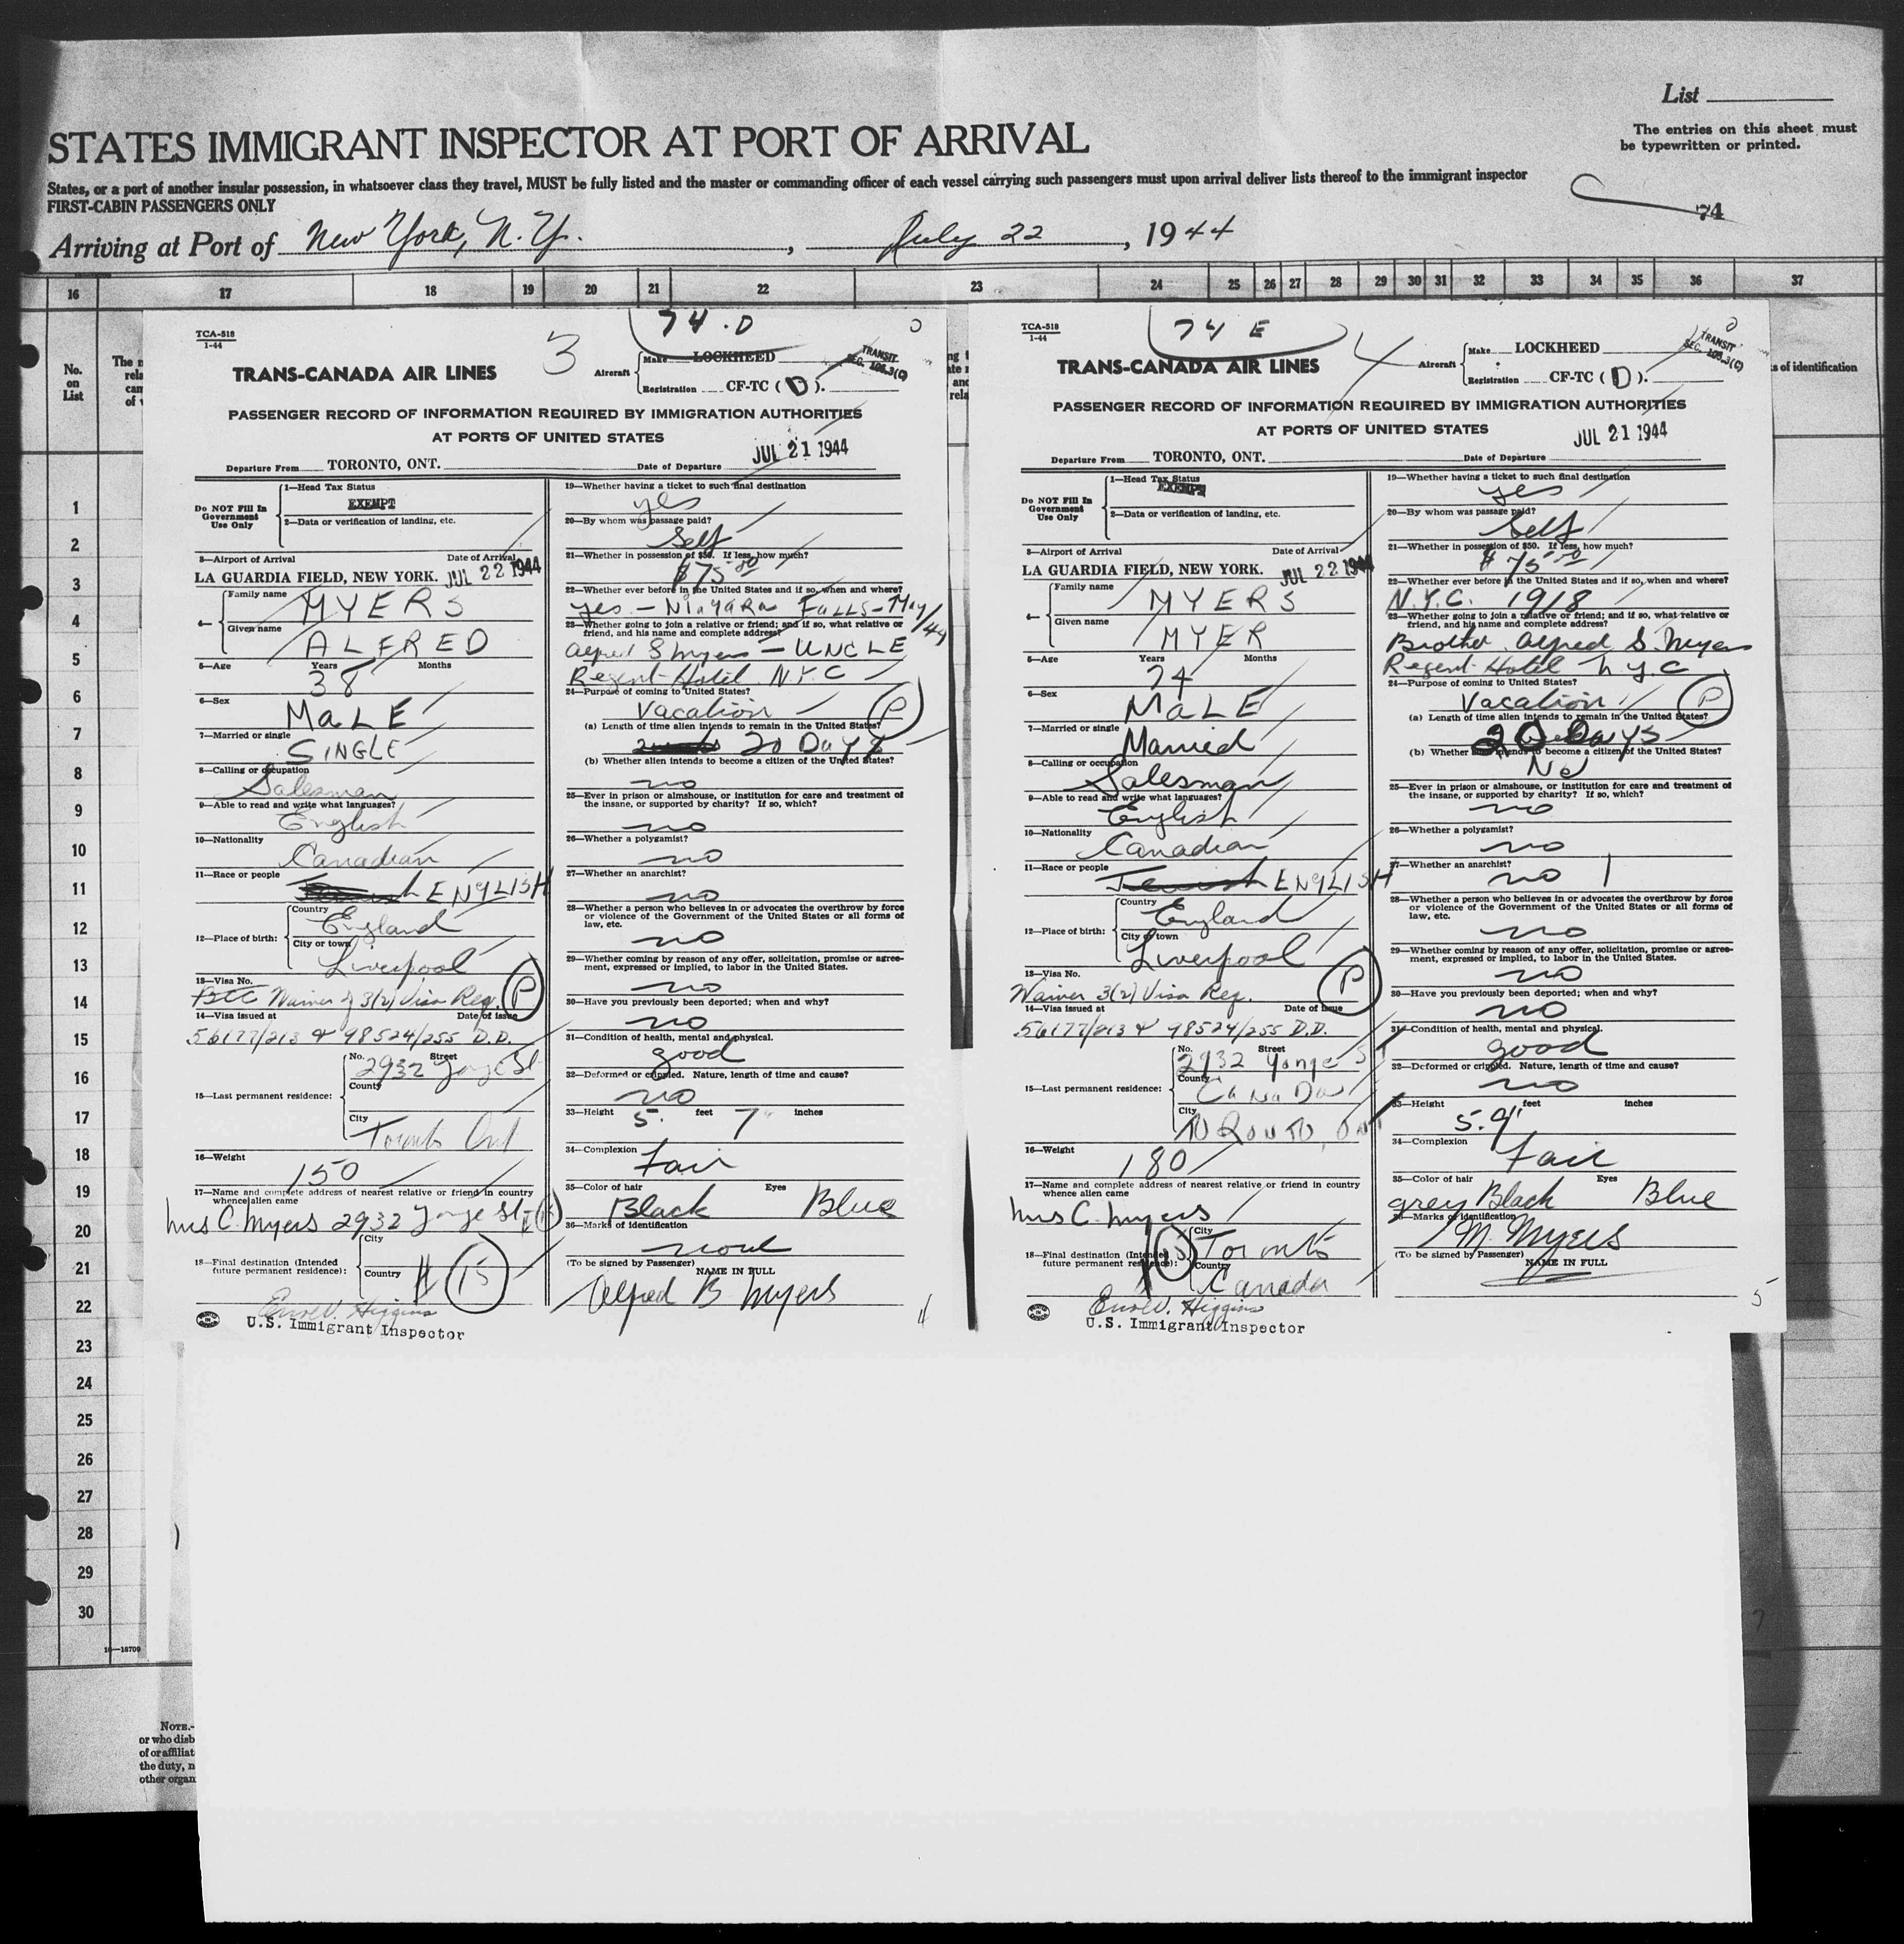 List
The entries on this sheet must
be typewritten or printed.
STATES IMMIGRANT INSPECTOR AT PORT OF ARRIVAL
States, or a port of another insular possession, in whatsoever class they travel, MUST be fully listed and the master or commanding officer of each vessel carrying such passengers must upon arrival deliver lists thereof to the immigrant inspector
FIRST-CABIN PASSENGERS ONLY
74
Arriving at Port of New York, N.Y., July 22, 1944
16 17 18 19 20 21 22 23 24 25 26 27 28 29 30 31 32 33 34 35 36 37
No.
on
List
s of identification
1
2
3
4
5
6
7
8
9
10
11
12
13
14
15
16
17
18
19
20
21
22
23
24
25
26
27
28
29
30
TCA-518
1-44
3
74.D
Aircraft
Make LOCKHEED
Registration CF-TC (D).
TRANSIT
SEC. 105.3(C)
TRANS-CANADA AIR LINES
PASSENGER RECORD OF INFORMATION REQUIRED BY IMMIGRATION AUTHORITIES
AT PORTS OF UNITED STATES
JUL 21 1944
Departure From TORONTO, ONT. Date of Departure
Do NOT Fill In
Government
Use Only
1—Head Tax Status
EXEMPT
2—Data or verification of landing, etc.
3—Airport of Arrival Date of Arrival
LA GUARDIA FIELD, NEW YORK. JUL 22 1944
4— Family name
MYERS
Given name
ALFRED
5—Age Years Months
38
6—Sex
MaLE
7—Married or single
SINGLE
8—Calling or occupation
Salesman
9—Able to read and write what languages?
English
10—Nationality
Canadian
11—Race or people
Jewish ENGLISH
12—Place of birth:
Country
England
City or town
Liverpool
13—Visa No.
BCC Waiver of 3(2) Visa Req. P
14—Visa issued at Date of issue
56177/213 & 98524/255 D.D.
15—Last permanent residence:
No. Street
2932 Yonge St
County
City
Toronto Ont
16—Weight
150
17—Name and complete address of nearest relative or friend in country
whence alien came
Mrs C. Myers 2932 Yonge St
18—Final destination (Intended
future permanent residence):
City
Country
15
Errol V. Higgins
U.S. Immigrant Inspector
19—Whether having a ticket to such final destination
yes
20—By whom was passage paid?
Self
21—Whether in possession of $50. If less, how much?
$75.00
22—Whether ever before in the United States and if so, when and where?
yes — Niagara Falls — May/44
23—Whether going to join a relative or friend; and if so, what relative or
friend, and his name and complete address?
Alfred S Myers — UNCLE
Regent Hotel N.Y.C
24—Purpose of coming to United States?
Vacation P
(a) Length of time alien intends to remain in the United States?
20 Days
(b) Whether alien intends to become a citizen of the United States?
no
25—Ever in prison or almshouse, or institution for care and treatment of
the insane, or supported by charity? If so, which?
no
26—Whether a polygamist?
no
27—Whether an anarchist?
no
28—Whether a person who believes in or advocates the overthrow by force
or violence of the Government of the United States or all forms of
law, etc.
no
29—Whether coming by reason of any offer, solicitation, promise or agree-
ment, expressed or implied, to labor in the United States.
no
30—Have you previously been deported; when and why?
no
31—Condition of health, mental and physical.
good
32—Deformed or crippled. Nature, length of time and cause?
no
33—Height 5. feet 7" inches
34—Complexion
Fair
35—Color of hair Eyes
Black Blue
36—Marks of identification
none
(To be signed by Passenger) NAME IN FULL
Alfred B Myers
TCA-518
1-44
74 E
4
Aircraft
Make LOCKHEED
Registration CF-TC (D).
TRANSIT
SEC. 105.3(C)
TRANS-CANADA AIR LINES
PASSENGER RECORD OF INFORMATION REQUIRED BY IMMIGRATION AUTHORITIES
AT PORTS OF UNITED STATES
JUL 21 1944
Departure From TORONTO, ONT. Date of Departure
Do NOT Fill In
Government
Use Only
1—Head Tax Status
EXEMPT
2—Data or verification of landing, etc.
3—Airport of Arrival Date of Arrival
LA GUARDIA FIELD, NEW YORK. JUL 22 1944
4— Family name
MYERS
Given name
MYER
5—Age Years Months
74
6—Sex
MaLE
7—Married or single
Married
8—Calling or occupation
Salesman
9—Able to read and write what languages?
English
10—Nationality
Canadian
11—Race or people
Jewish ENGLISH
12—Place of birth:
Country
England
City or town
Liverpool
13—Visa No.
Waiver 3(2) Visa Req. P
14—Visa issued at Date of issue
56177/213 & 98524/255 D.D.
15—Last permanent residence:
No. Street
2932 Yonge ST
County
CaNaDa
City
TORONTO, ONT
16—Weight
180
17—Name and complete address of nearest relative or friend in country
whence alien came
Mrs C. Myers
18—Final destination (Intended
future permanent residence):
City
Toronto
Country
Canada
Errol V. Higgins
U.S. Immigrant Inspector
19—Whether having a ticket to such final destination
yes
20—By whom was passage paid?
Self
21—Whether in possession of $50. If less, how much?
$75.00
22—Whether ever before in the United States and if so, when and where?
N.Y.C. 1918
23—Whether going to join a relative or friend; and if so, what relative or
friend, and his name and complete address?
Brother Alfred S. Myers
Regent Hotel N.Y.C
24—Purpose of coming to United States?
Vacation P
(a) Length of time alien intends to remain in the United States?
20 Days
(b) Whether alien intends to become a citizen of the United States?
No
25—Ever in prison or almshouse, or institution for care and treatment of
the insane, or supported by charity? If so, which?
no
26—Whether a polygamist?
no
27—Whether an anarchist?
no
28—Whether a person who believes in or advocates the overthrow by force
or violence of the Government of the United States or all forms of
law, etc.
no
29—Whether coming by reason of any offer, solicitation, promise or agree-
ment, expressed or implied, to labor in the United States.
no
30—Have you previously been deported; when and why?
no
31—Condition of health, mental and physical.
good
32—Deformed or crippled. Nature, length of time and cause?
no
33—Height feet inches
5.9"
34—Complexion
Fair
35—Color of hair Eyes
grey Black Blue
36—Marks of identification
M. Myers
(To be signed by Passenger)
NAME IN FULL
5
16—18709
NOTE.—
or who disb
of or affiliat
the duty, n
other organ